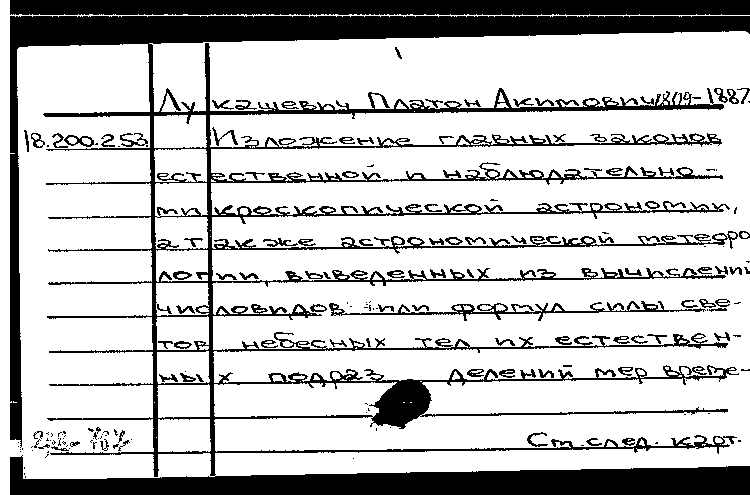 Лукашевич, Платон Акимович 1809-1887.
18.200.253 Изложение главных законов
естественной и наблюдательно-
микроскопической астрономии,
а также астрономической метеоро
логии, выведенных из вычислений
числовидов или формул силы све-
тов небесных тел, их естествен-
ных подраз делений мер време-
См. след. карт.